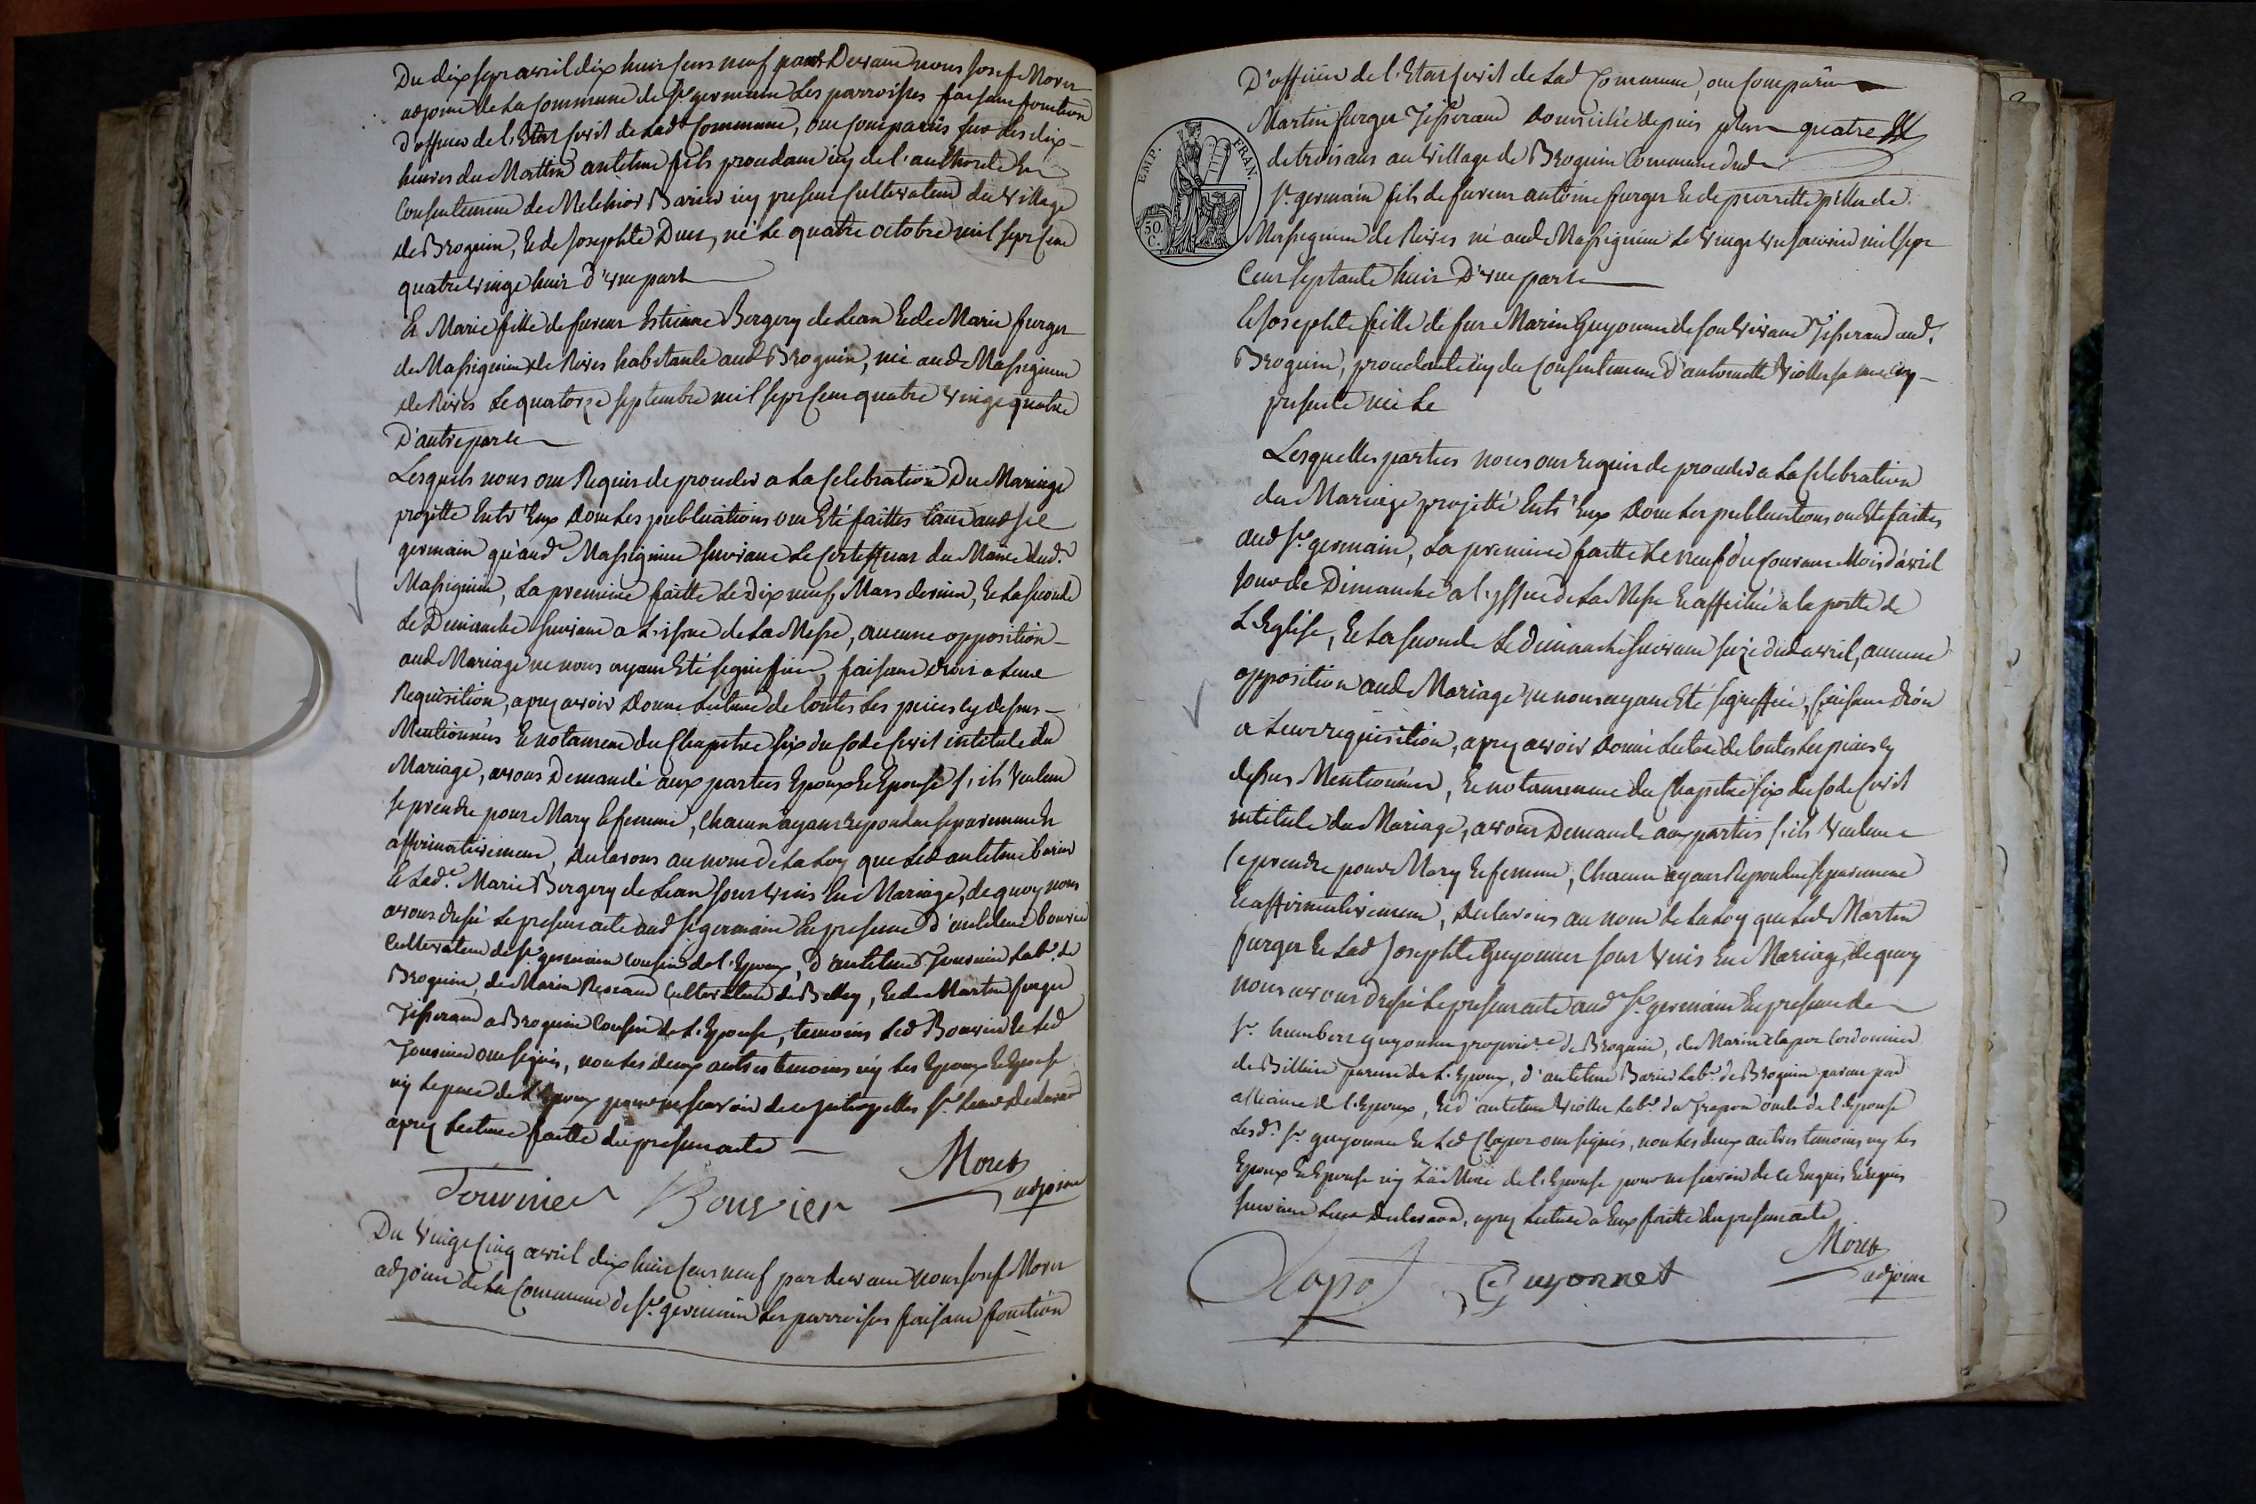 Du dix sept avril dix huit cens neuf par Devant nous Josef Moret
adjoint de La Commune de St germain Les parroisses faisant fonction
d'officier de l'Etat Civil de Lade Commune, ont comparus sur Les dix
heures du Mattin antelme fils procedant icy de l'authorité et
Consentement de Melchior Barier icy present Cultivateur du village
de Brognin, Et de Josephte Duc, né Le quatre octobre mil sept cent
quatre vingt huit d'une part
Et Marie fille de furent Estienne Bergery de Lean Et de Marie furger
de Massignieu de Rives habitante aud Brognin, née aud Massignieu
de Rives Le quatorze septembre mil sept cent quatre vingt quatre
D'autre part
Lesquels nous ont Requis de proceder a La Celebration Du Mariage
projetté Entr'Eux Dont Les publications ont Eté faittes tant aud St
germain qu'aud Massignieu suivant Le certifficat du Maire dud.
Massignieu, La premiere faitte Le dix neuf Mars dernier, Et La seconde
Le Dimanche suivant a L'issue de La Messe, aucune opposition
aud Mariage ne nous ayant Eté signiffiée, faisant droit a Leur
Requisition, apres avoir Donné Lecture de toutes Les pieces cy dessus
Mentionnées Et notament du Chapitre six du Code Civil intitulé du
Mariage, avons Demandé aux parties Epoux Et Epouse s'ils veulent
se prendre pour Mary Et femme, Chacun ayant repondu separement Et
affirmativement, declarons au nom de La Loy que Led antelme barier
Et Lade. Marie Bergery de Lean sont unis En Mariage, de quoy nous
avons dressé Le present acte aud St germain En presence d'antelme bouvier
Cultivateur de St germain cousin de l'Epoux, d'antelme Tournier Labr. de
Brognin, de Marin Cultivateur de Belley, Et de Martin furger
Tisserand a Brognin Cousin de L'Epouse, temoins Led Bouvier Et Led
Tournier ont signés, non Les deux autres temoins ny Les Epoux Et Epouse
ny Le pere de L'Epoux pour ne scavoir de ce suivt Leur Declaration
apres Lecture faitte du present acte
Tournier Bouvier Moret
adjoint
Du vingt cinq avril dix huit cens neuf par devant nous Josef Moret
adjoint de La Commune de St germain Les parroisses faisant fonction
D'officier de l'Etat Civil de Lad Commune, ont comparu
EMP. FRAN.
50 C.
Martin furger Tisserand Domicilié depuis plus quatre
de trois ans au village de Brognin Commune dud
St germain fils de furent antoine furger Et de pierrette pillet de
Massignieu de Rives né aud Massignieu Le vingt un janvier mil sept
Cent septante huit D'une part
Et Josephte fille de feu Marin Guyonnet de son vivant Tisserand aud.
Brognin, procedante icy du Consentement d'antoinette viollet sa mere icy
presente née Le
Lesquelles parties nous ont requis de proceder a La Celebration
du Mariage projetté Entr'Eux Dont Les publications ont Eté faittes
aud St germain, La premiere faitte Le neuf du Courant Mois d'avril
jour de Dimanche a l'yssue de La Messe Et affichée a la porte de
L'Eglise, Et La seconde Le dimanche suivant seize dud avril, aucune
opposition aud Mariage ne nous ayant Eté signiffiée, faisant droit
a Leur requisition, apres avoir Donné Lecture de toutes Les pieces cy
dessus Mentionnées, Et notamment du Chapitre six du Code Civil
intitulé du Mariage, avons Demandé aux parties s'ils veulent
se prendre pour Mary Et femme, Chacun ayant Repondu separement
Et affirmativement, declarons au nom de La Loy que Led Martin
furger Et Lad Josephte Guyonnet sont unis En Mariage, de quoy
nous avons dressé Le present acte aud St germain En presence de
Sr. humbert guyonnet propriere. de Brognin, de Marin Clapot Cordonnier
de Billieu parent de L'Epoux, d'antelme Barier Labr. de Brognin parent par
alliance de l'Epoux, Et d'antelme viollet Labr. du oncle de l'Epouse
Lesd. Sr guyonnet Et Led Clapot ont signés, non Les deux autres temoins ny Les
Epoux Et Epouse ny La Mere de l'Epouse pour ne scavoir de ce Enquis Et requis
suivant Leur Declaration, apres Lecture a Eux faitte du present acte
Clapot Guyonnet Moret
adjoint